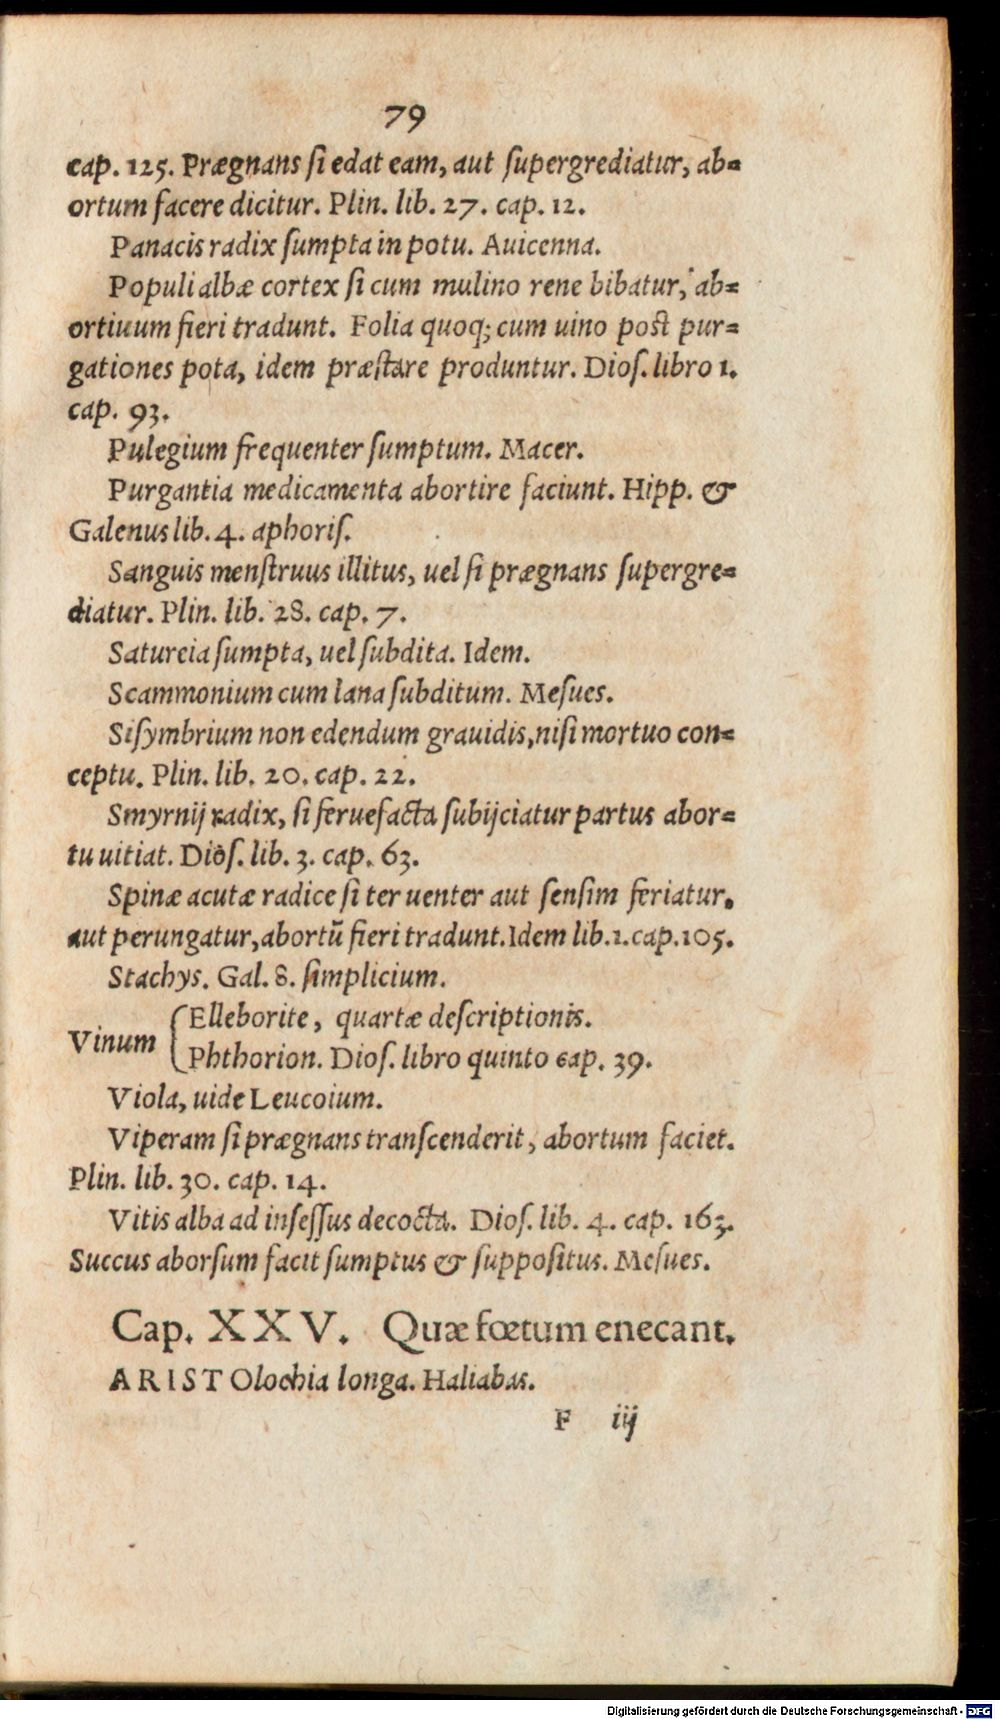 79
cap. 125. Prægnans ſi edat eam, aut ſupergrediatur, ab=
ortum facere dicitur. Plin. lib. 27. cap. 12.
Panacis radix ſumpta in potu. Auicenna.
Populi albæ cortex ſi cum mulino rene bibatur, ab=
ortiuum fieri tradunt. Folia quoq; cum uino poſt pur=
gationes pota, idem præſtare produntur. Dioſ. libro 1.
cap. 93.
Pulegium frequenter ſumptum. Macer.
Purgantia medicamenta abortire faciunt. Hipp. &
Galenus lib. 4. aphoriſ.
Sanguis menſtruus illitus, uel ſi prægnans ſupergre=
diatur. Plin. lib. 28. cap. 7.
Satureia ſumpta, uel ſubdita. Idem.
Scammonium cum lana ſubditum. Meſues.
Siſymbrium non edendum grauidis, niſi mortuo con=
ceptu. Plin. lib. 20. cap. 22.
Smyrnij radix, ſi feruefacta ſubijciatur partus abor=
tu uitiat. Dioſ. lib. 3. cap. 63.
Spinæ acutæ radice ſi ter uenter aut ſenſim feriatur.
aut perungatur, abortũ fieri tradunt. Idem lib. 1. cap. 105.
Stachys. Gal. 8. ſimplicium.
Vinum { Elleborite, quartæ deſcriptionis.
Phthorion. Dioſ. libro quinto cap. 39.
Viola, uide Leucoium.
Viperam ſi prægnans tranſcenderit, abortum faciet.
Plin. lib. 30. cap. 14.
Vitis alba ad inſeſſus decocta. Dioſ. lib. 4. cap. 163.
Succus aborſum facit ſumptus & ſuppoſitus. Meſues.
Cap. XXV. Quæ fœtum enecant.
ARISTOlochia longa. Haliabas.
F iij
Digitalisierung gefördert durch die Deutsche Forschungsgemeinschaft - DFG